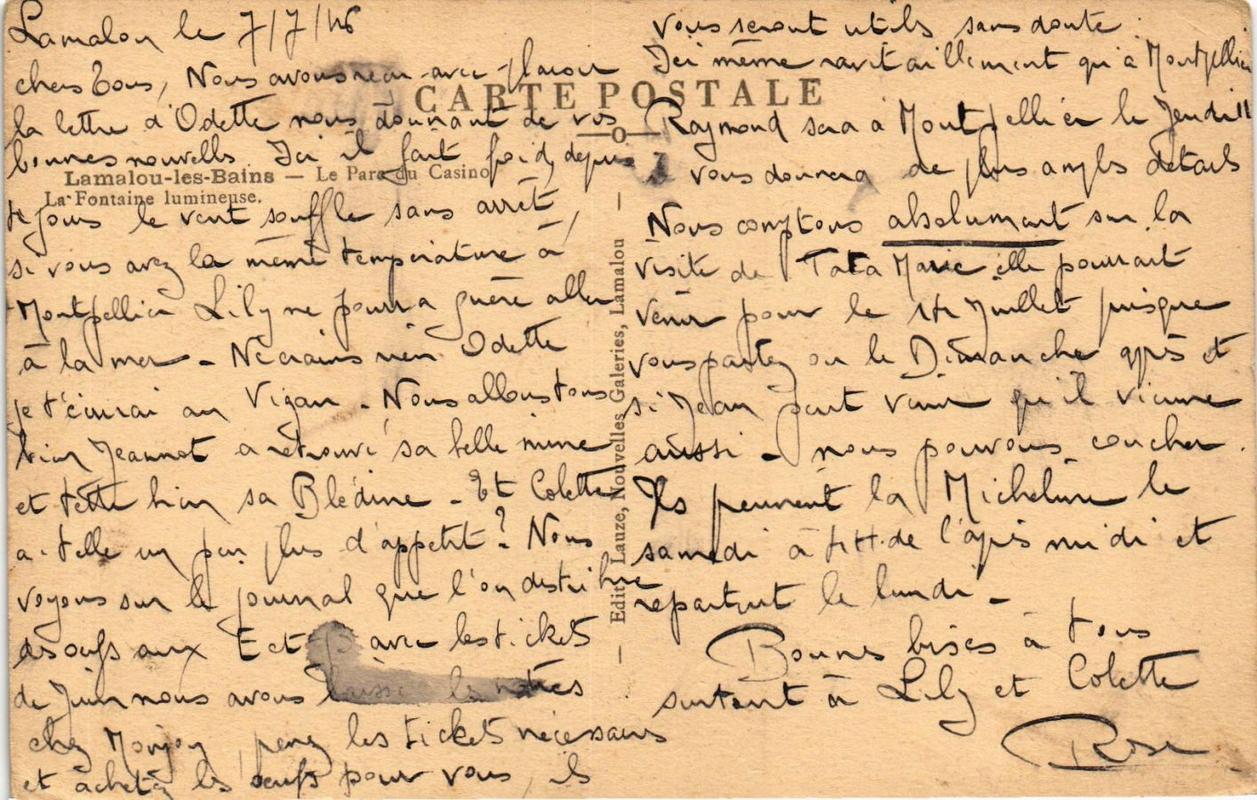 Lamalou le 7/7/46
chers Tous, Nous avons reçu avec plaisir
la lettre d'Odette nous donnant de vos
bonnes nouvelles. Ici il fait froid, depuis
jours le vent souffle sans arrêt,
si vous avez la même température à
Montpellier Lily ne pourra guère aller
à la mer - Ne crains rien Odette
je t'écrirai au Vigan. Nous allons tous
bien Jeannot a retrouvé sa belle mine
et tette bien sa Blédine - Et Colette
a-t-elle un peu plus d'appetit? Nous
voyons sur le journal que l'on distribue
des oeufs aux E et P avec les tickets
de Juin nous avons laissé les nôtres
chez Monjon, prenez les tickets nécessaires
et achetez les oeufs pour vous, ils
CARTE POSTALE
—o—
Lamalou-les-Bains — Le Parc du Casino
La Fontaine lumineuse.
Edit. Lauze, Nouvelles Galeries, Lamalou
vous seront utils sans doute.
Ici même ravitaillement qu'à Montpellier
Raymond sera à Montpellier le Jeudi 11
vous donnera de plus amples détails
Nous comptons absolument sur la
visite de Tata Marie elle pourrait
venir pour le 14 Juillet puisque
vous partez ou le Dimanche après et
si Jean peut venir qu'il vienne
aussi - nous pouvons coucher.
Ils prennent la Micheline le
samedi à H. de l'après midi et
repartent le lundi -
Bonnes bises à tous
surtout à Lily et Colette
Rose